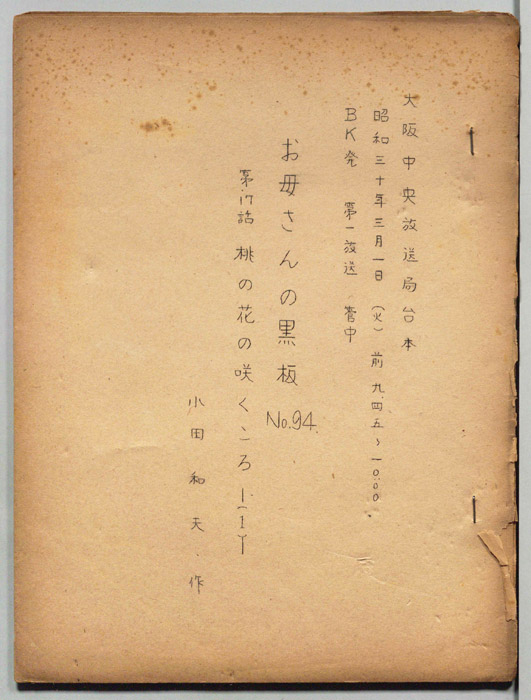 大阪中央放送局台本
昭和三十年三月一日（火）前九.四五〜一〇.〇〇
BK発 第一放送 管中
お母さんの黒板 No.94.
第17話 桃の花の咲くころ—(1)—
小田和夫、作